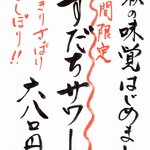 の味覚はじめまし
間限定
すだちサワー
きりさっぱり
しぼり!!
六八〇円